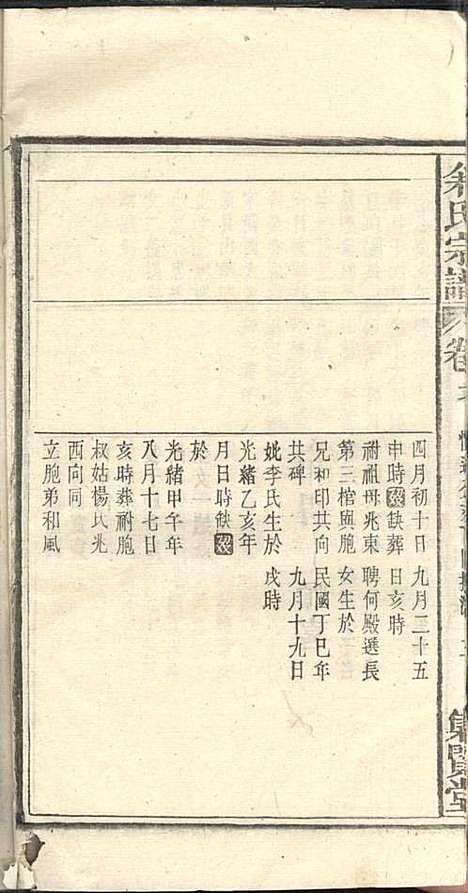 余氏宗譜
卷
集賢堂
四月初十日
申時歿缺葬
祔祖母兆東
第三棺與胞
兄和印共向
共碑
妣李氏生於
光緒乙亥年
月日時缺歿
於
光緒甲午年
八月十七日
亥時葬祔胞
叔姑楊氏兆
西向同
立胞弟和風
九月二十五
日亥時
聘何殿選長
女生於
民國丁巳年
九月十九日
戌時